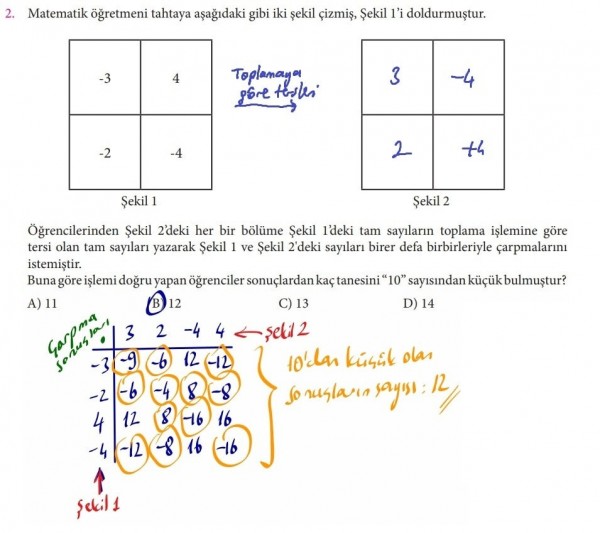 2. Matematik öğretmeni tahtaya aşağıdaki gibi iki şekil çizmiş, Şekil 1'i doldurmuştur.
-3 4
-2 -4
Şekil 1
Toplamaya
göre tersleri
3 -4
2 +4
Şekil 2
Öğrencilerinden Şekil 2'deki her bir bölüme Şekil 1'deki tam sayıların toplama işlemine göre
tersi olan tam sayıları yazarak Şekil 1 ve Şekil 2'deki sayıları birer defa birbirleriyle çarpmalarını
istemiştir.
Buna göre işlemi doğru yapan öğrenciler sonuçlardan kaç tanesini "10" sayısından küçük bulmuştur?
A) 11 B) 12 C) 13 D) 14
Çarpma
sonuçları
• 3 2 -4 4 Şekil 2
-3 -9 -6 12 -12
-2 -6 -4 8 -8
4 12 8 -16 16
-4 -12 -8 16 -16
Şekil 1
10'dan küçük olan
sonuçların sayısı: 12